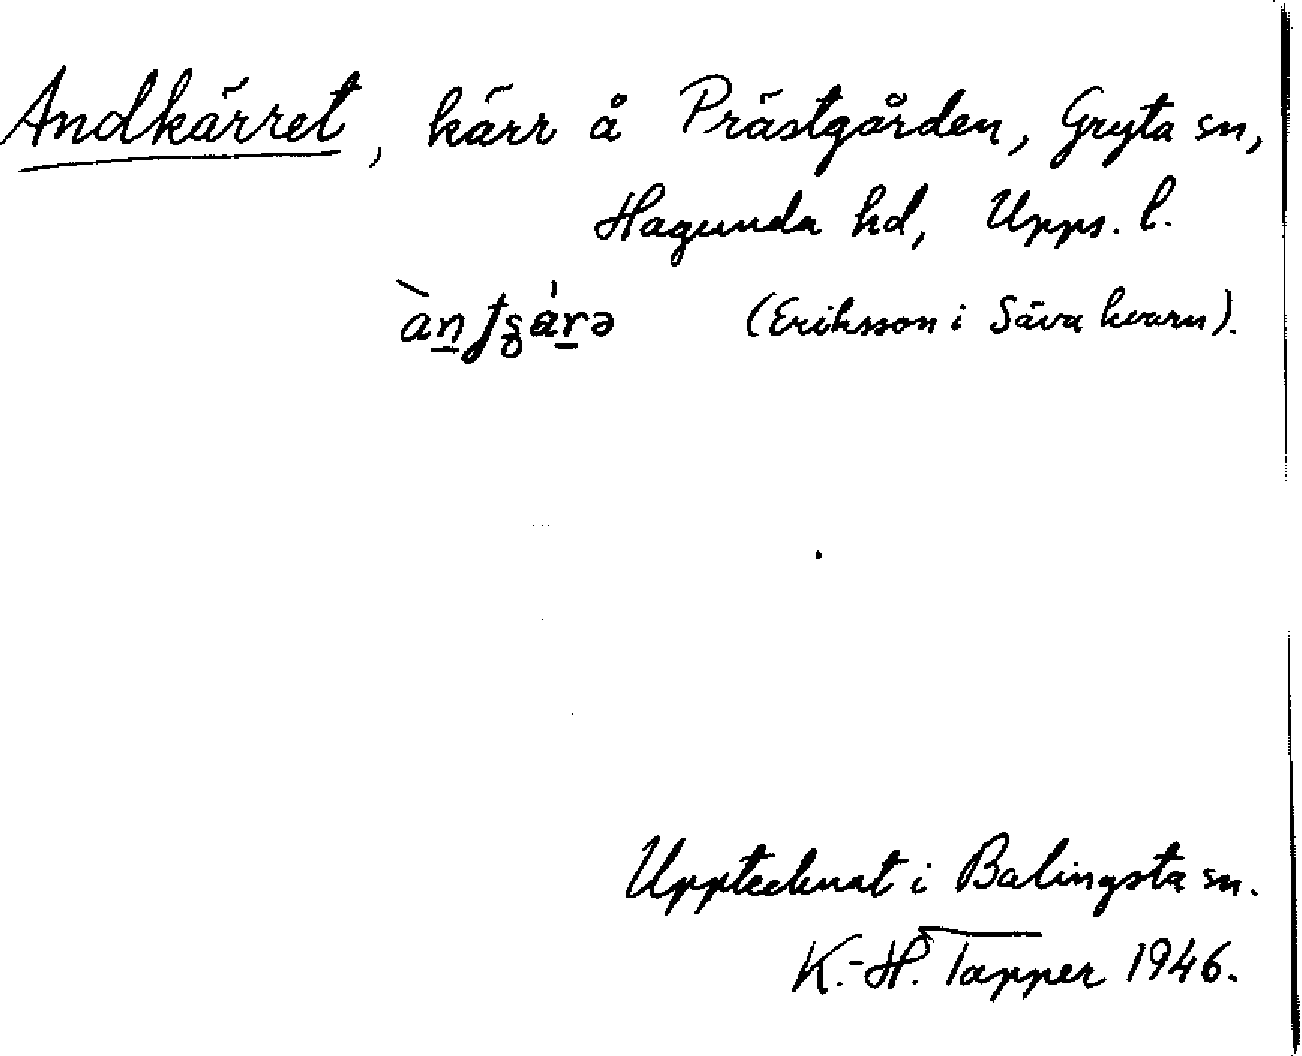 Andkärret, kärr å Prästgården, Gryta sn,
Hagunda hd, Upps. l.
(Eriksson i Säva kvarn).
Upptecknat i Balingsta sn.
K.-H. Tapper 1946.